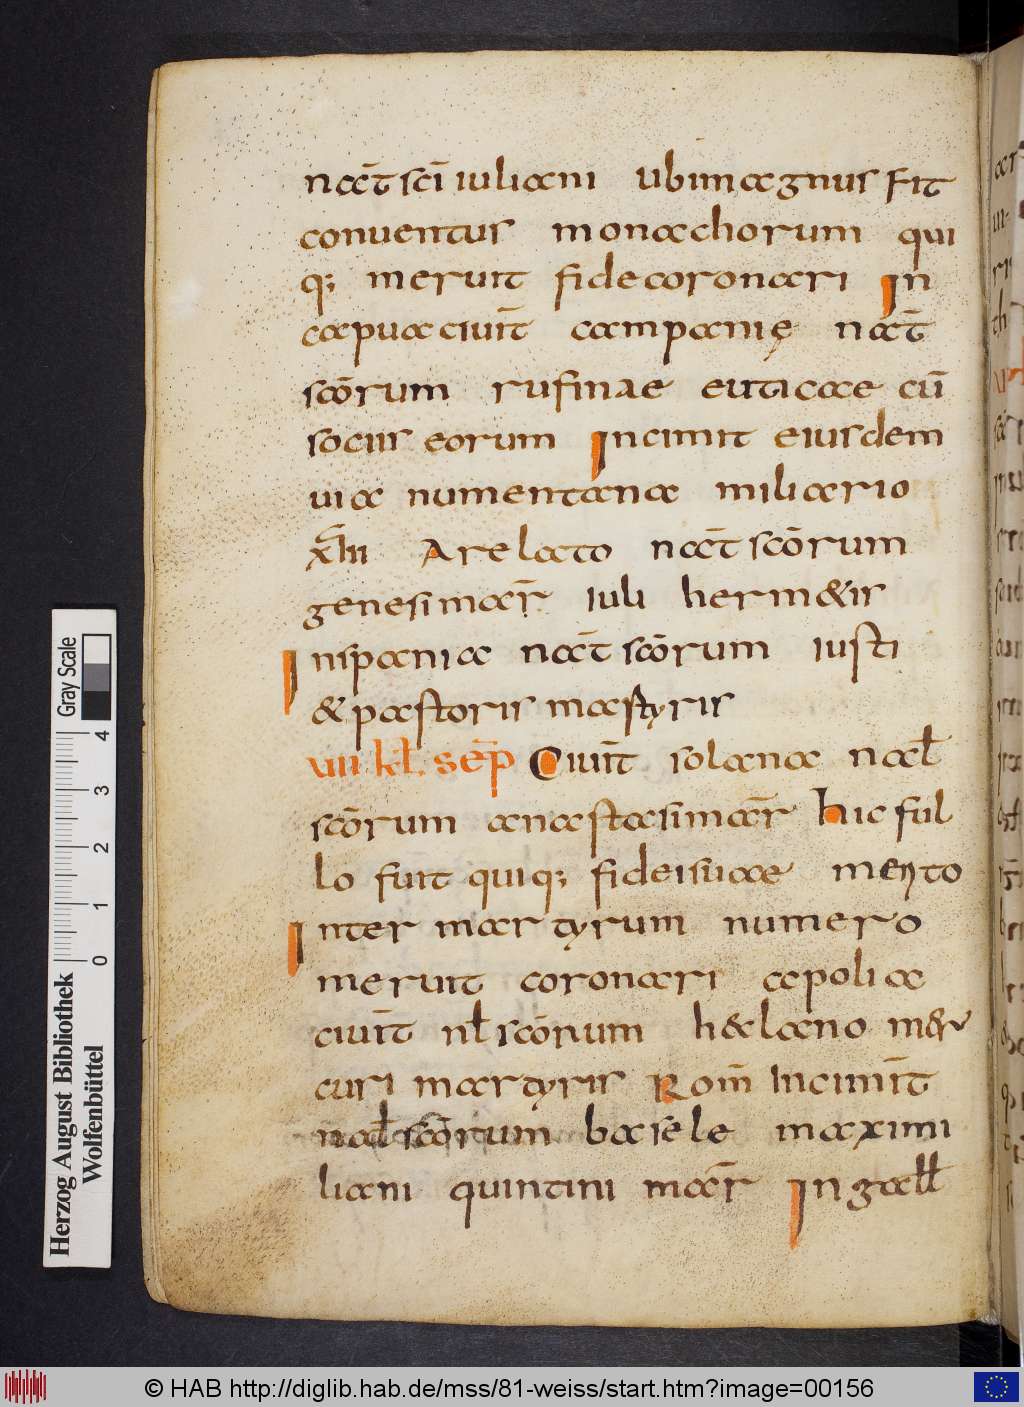 nat̄ sc̄i iuliani ubi magnus fit
conuentus monachorum qui
q; meruit fide coronari In
capua ciuit̄ campanię nat̄
sc̄orum rufinae euticae cū
sociis eorum Incimit eiusdem
uia numentana miliario
xiīii Arelato nat̄ sc̄orum
genesi mar̄ iuli herm&is
Inspania nat̄ sc̄orum iusti
& pastoris mastyris
uiii kl̄ sep̄ Ciuit̄ solana nal̄
sc̄orum anastasi mar̄ hic ful
lo fuit qui q; fidei suae merito
Inter martyrum numero
meruit coronari apolia
ciuit̄ nl̄ sc̄orum h&lano m&r
curi martyris Rom̄ Incimit̄
nal̄ sc̄orum basele maximi
liani quintini mar̄ In gall̄
Gray Scale
4
3
2
1
0
Herzog August Bibliothek
Wolfenbüttel
© HAB http://diglib.hab.de/mss/81-weiss/start.htm?image=00156